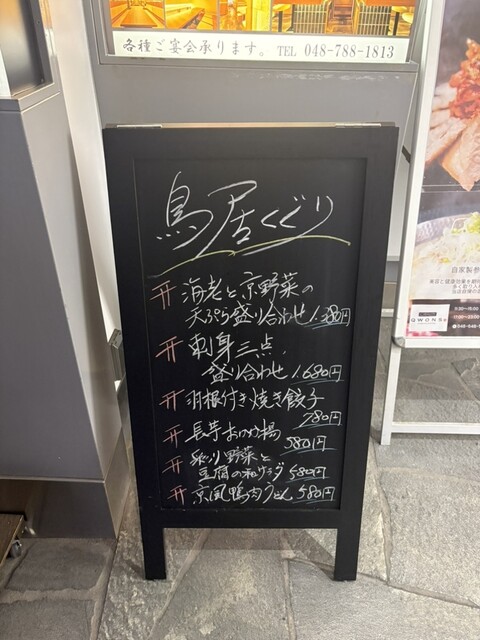 各種ご宴会承ります。 TEL 048-788-1813
鳥居くぐり
海老と京野菜の
天ぷら盛り合わせ 1.380円
刺身三点
盛り合わせ 1.680円
羽根付き焼き餃子
780円
長芋おかき揚 580円
炙り野菜と
豆腐の和サラダ 580円
京風鴨肉うどん 580円
自家製参